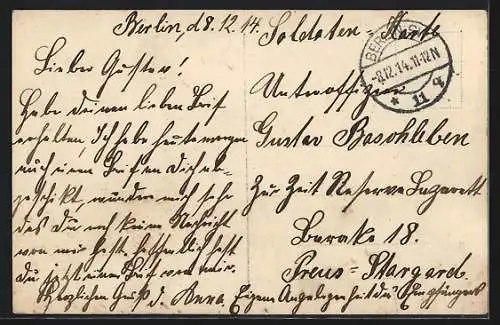 Berlin, d 8.12.14.
Lieber Gustav!
Habe deinen lieben Brief
erhalten, Ich habe heute morgen
auch einen Brief an Dich ab-
geschikt, wundere mich sehr
das Du noch keine Nachricht
von mir hast, hast
du jetzt einen Brief von mir.
Herzlichen Gruß d. Anna
Soldaten = Karte
Unteroffizier
Gustav Basohleben
Zur Zeit Reserve Lazarett
Barake 18.
Preus = Stargard
Eigene Angelegenheit des Empfängers
BERLIN
-8.12.14.11-12N
* 11 q